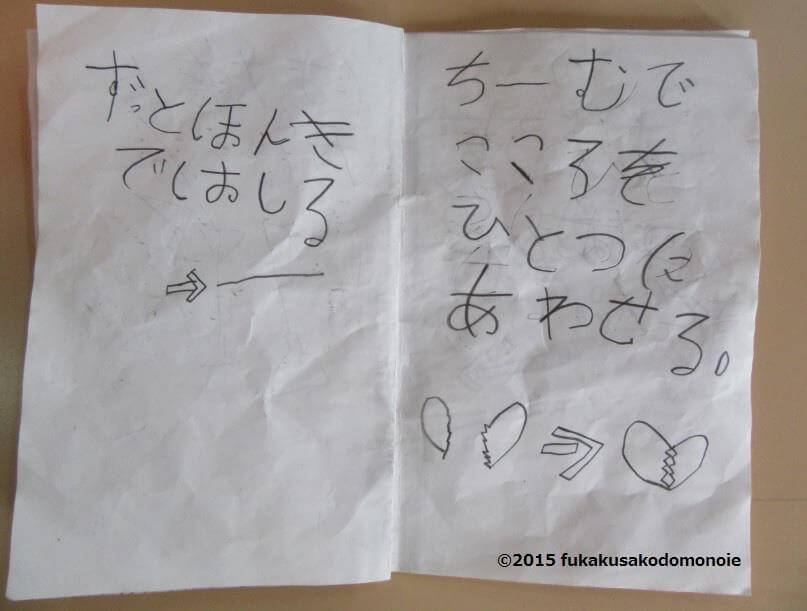 ずっとほんき
ではしる
ちーむで
こころを
ひとつに
あわせる。
©2015 fukakusakodomonoie